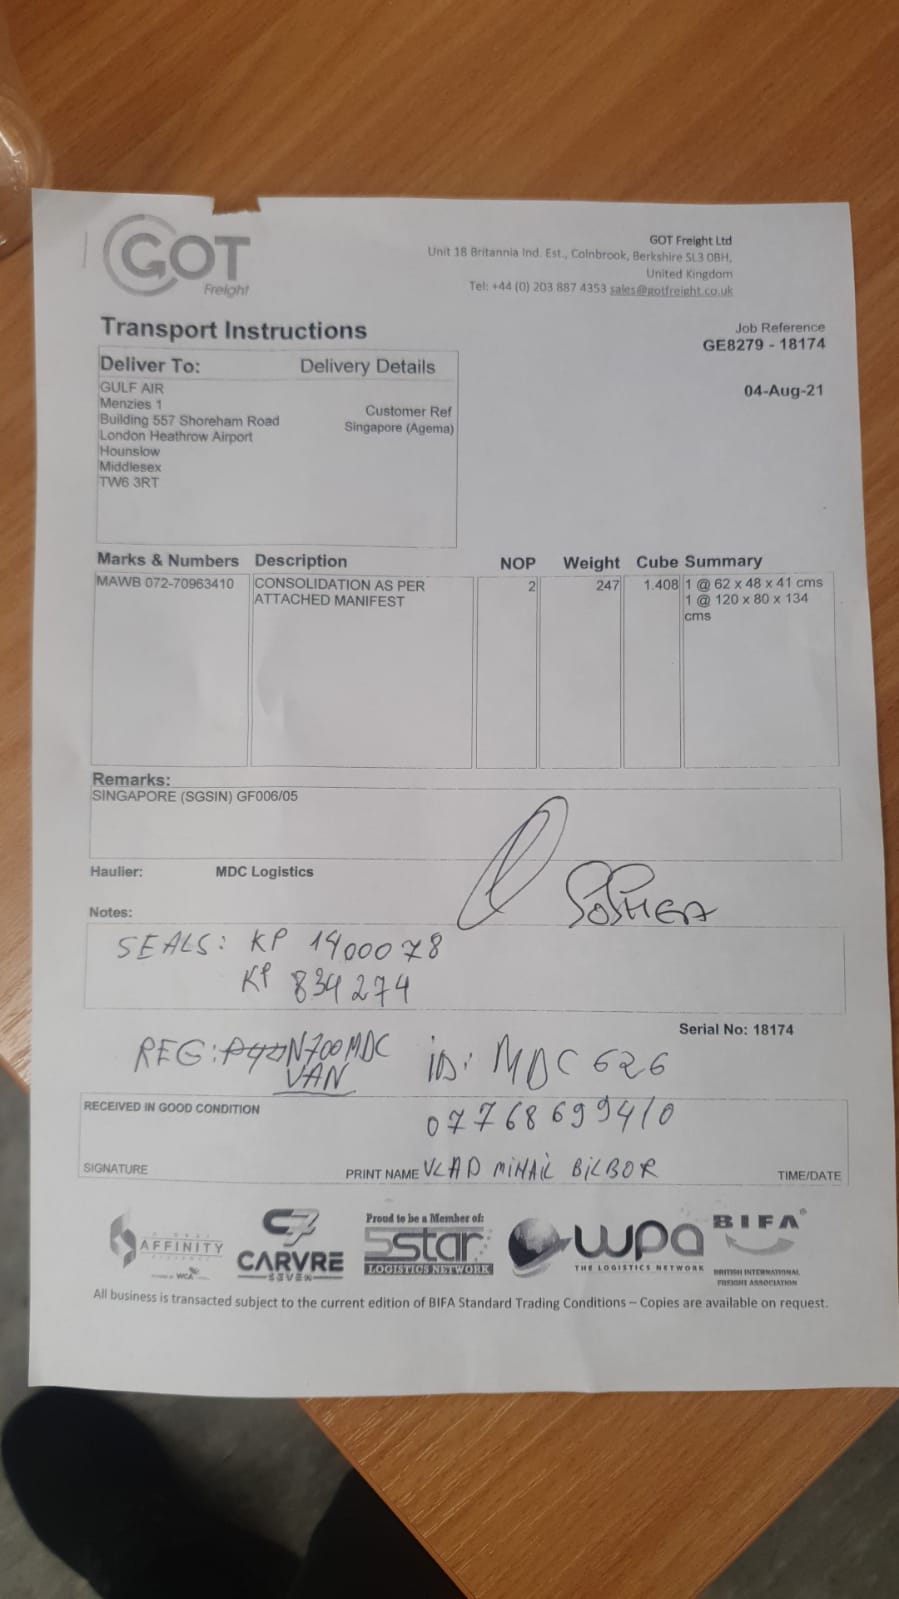 GOT
Freight
GOT Freight Ltd
Unit 18 Britannia Ind. Est., Colnbrook, Berkshire SL3 0BH,
United Kingdom
Tel: +44 (0) 203 887 4353 sales@gotfreight.co.uk
Transport Instructions
Job Reference
GE8279 - 18174
04-Aug-21
Deliver To: Delivery Details
GULF AIR
Menzies 1
Building 557 Shoreham Road
London Heathrow Airport
Hounslow
Middlesex
TW6 3RT
Customer Ref
Singapore (Agema)
Marks & Numbers Description NOP Weight Cube Summary
MAWB 072-70963410 CONSOLIDATION AS PER 2 247 1.408 1 @ 62 x 48 x 41 cms
ATTACHED MANIFEST 1 @ 120 x 80 x 134
cms
Remarks:
SINGAPORE (SGSIN) GF006/05
Haulier: MDC Logistics
Notes:
SEALS: KP 1400078
KP 834274
Serial No: 18174
REG: N700MDC iD: MDC 626
VAN
RECEIVED IN GOOD CONDITION
07768699410
SIGNATURE PRINT NAME VLAD MiHAiL BiLBOR TIME/DATE
AFFINITY
WCA
C7
CARVRE
SEVEN
Proud to be a Member of:
5star
LOGISTICS NETWORK
wpa
THE LOGISTICS NETWORK
BIFA
BRITISH INTERNATIONAL
FREIGHT ASSOCIATION
All business is transacted subject to the current edition of BIFA Standard Trading Conditions – Copies are available on request.